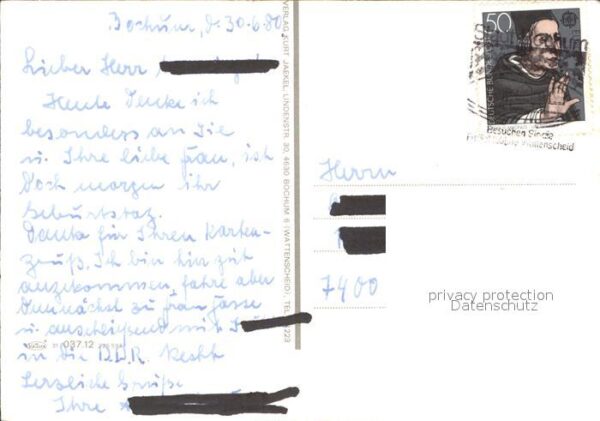 Bochum, d. 30.6.80
Lieber Herr
Heute denke ich
besonders an Sie
u. Ihre liebe Frau, ist
doch morgen ihr
Geburtstag.
Danke für Ihren Karten-
gruß. Ich bin hier gut
angekommen, fahre aber
demnächst zu Frau
u. anschließend mit
in die D.D.R. Recht
herzliche Grüße
Ihre
037.12
VERLAG KURT JAEKEL, LINDENSTR. 30, 4630 BOCHUM 6 (WATTENSCHEID), TEL.
50
DEUTSCHE BUNDESPOST
Besuchen Sie die
Wattenscheid
Herrn
7400
privacy protection
Datenschutz